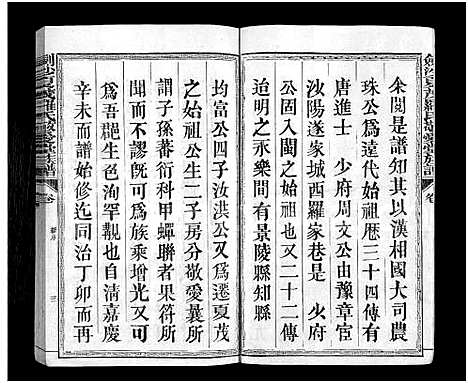 余閱是譜知其以漢相國大司農
珠公爲遠代始祖歷三十四傳有
唐進士 少府周文公由豫章宦
沩陽遂家城西羅家巷是 少府
公固入閩之始祖也又二十二傳
迨明之永樂間有景陵縣知縣
均富公四子汝洪公又爲遷夏茂
之始祖公生二子房分敬愛曩所
謂子孫蕃衍科甲蟬聯者果符所
言而不謬既可為族乘增光又可
爲吾郡生色洵罕覯也自清嘉慶
辛未而譜始修迄同治丁卯而再
劍沙夏茂羅氏敬愛堂族譜